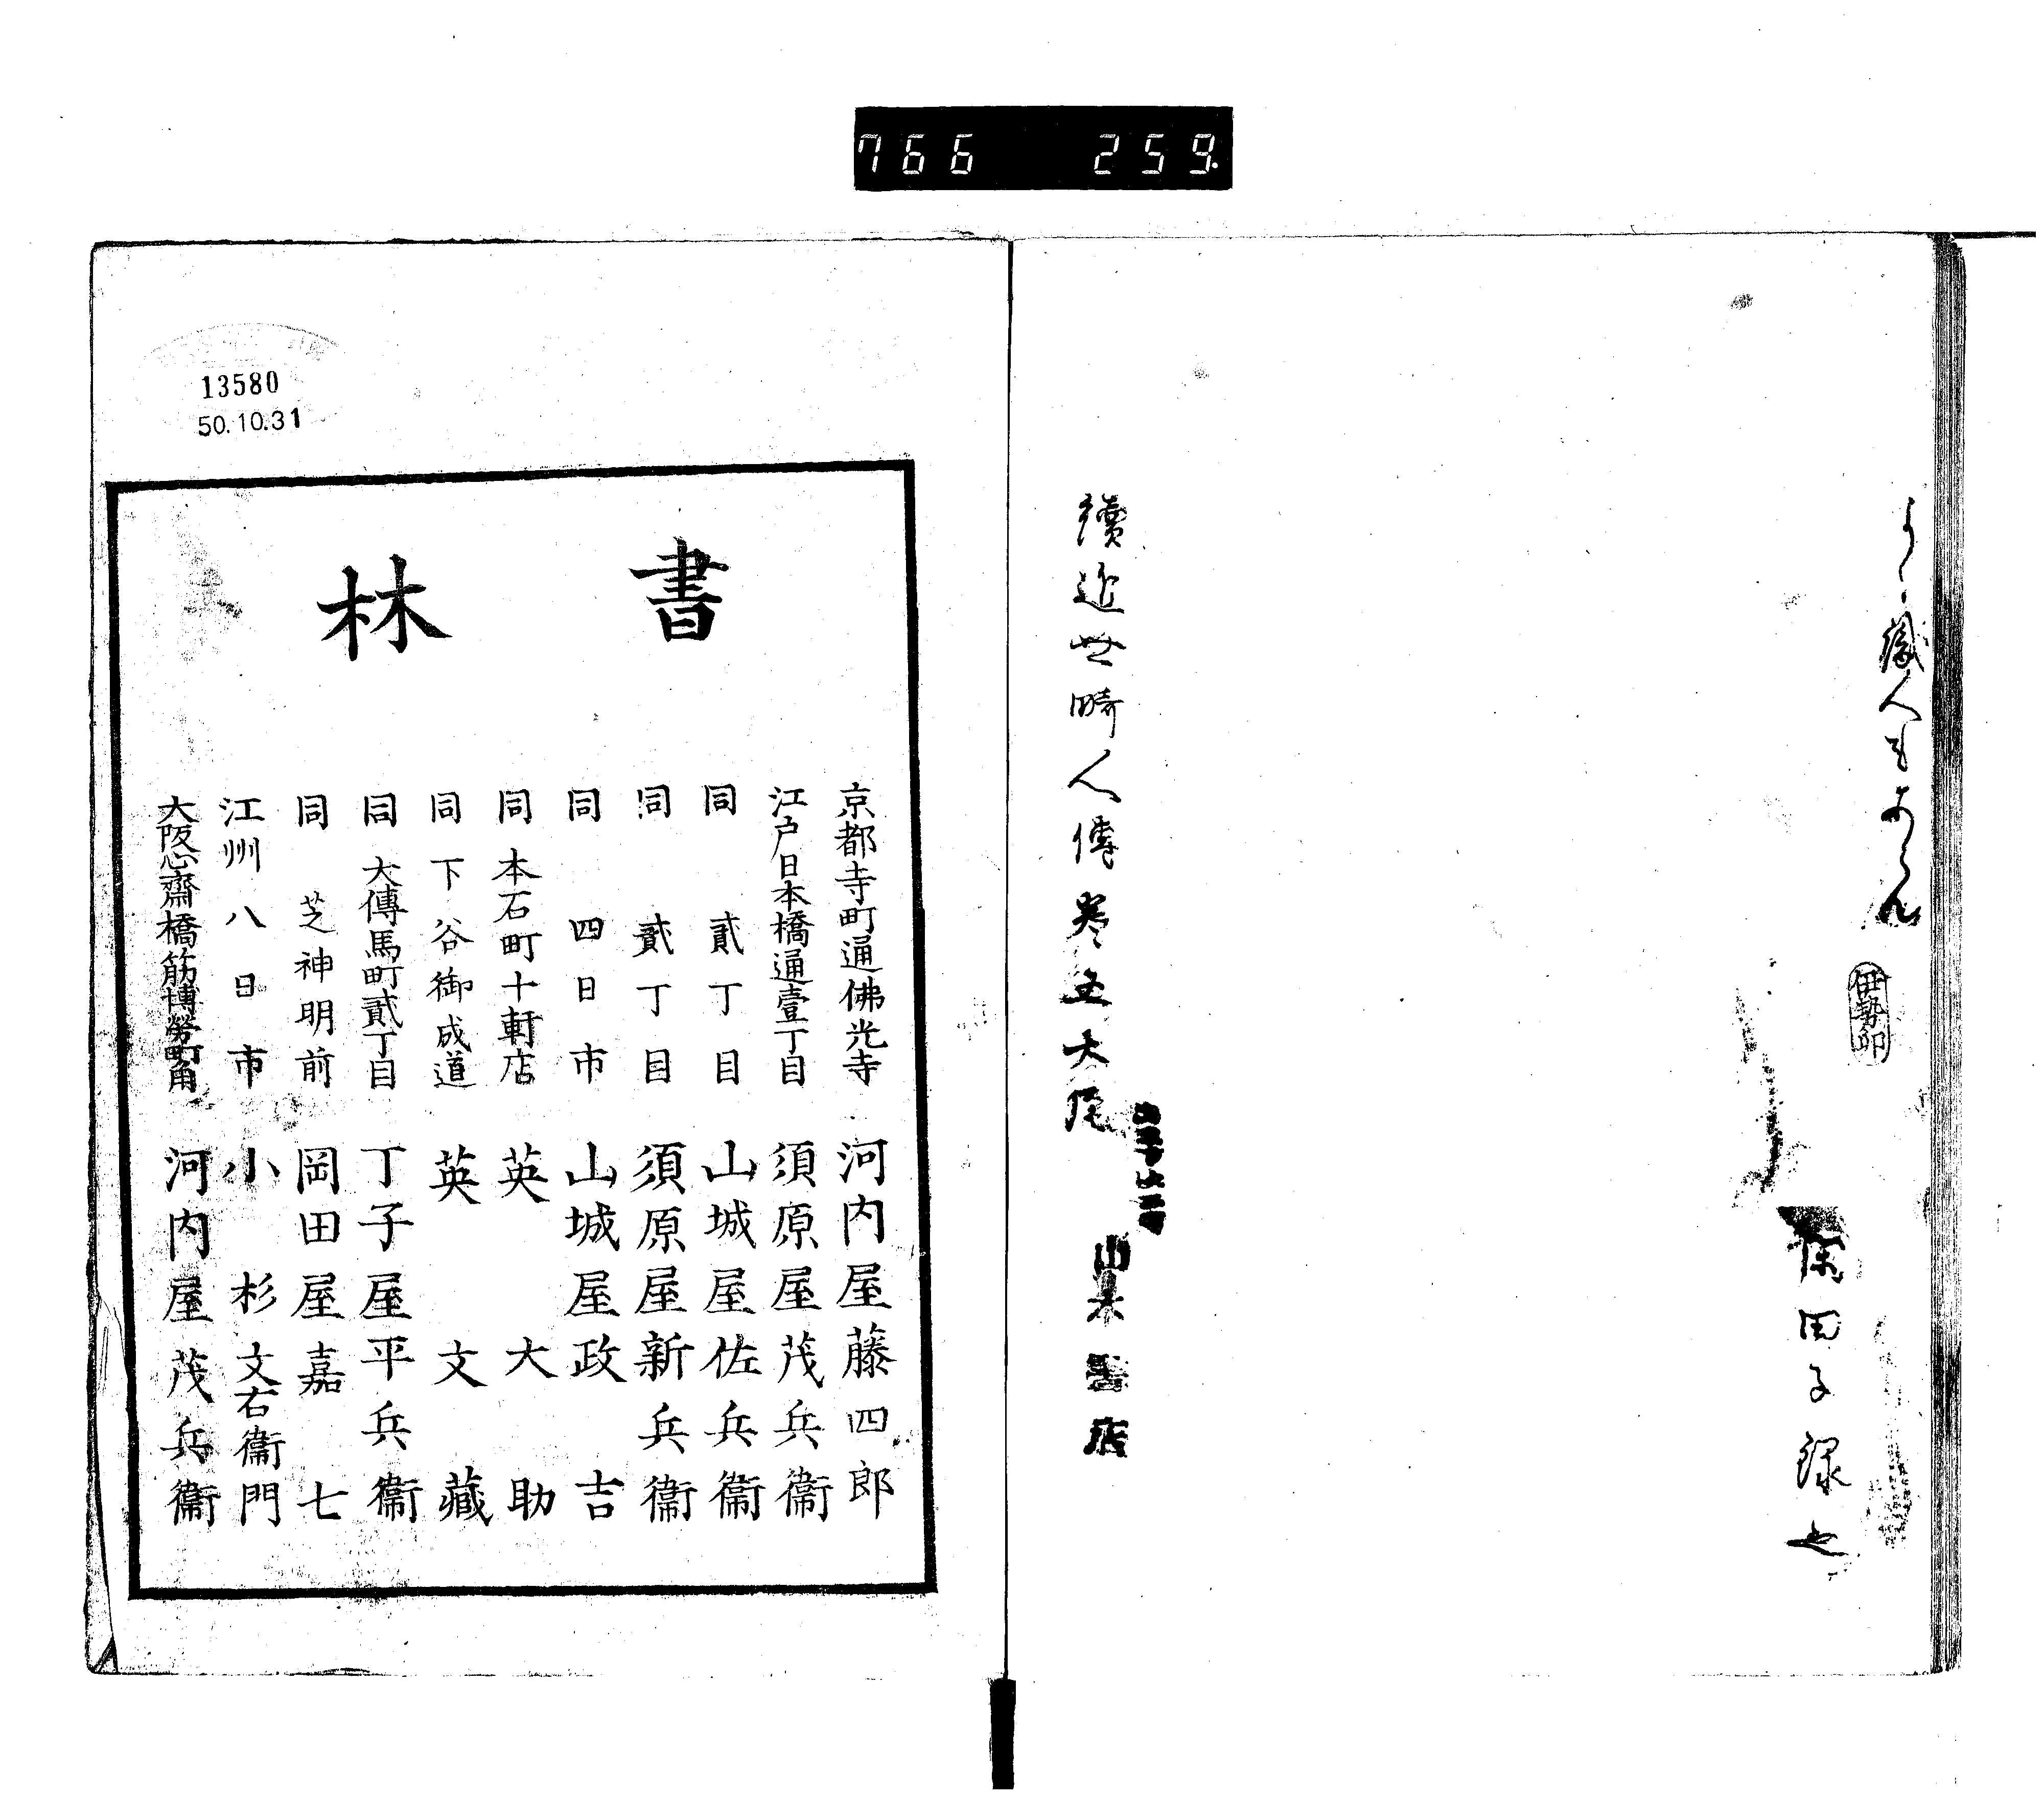 766 259
伊勢卯
田子録之
續近世畸人傳巻五大尾
店
13580
50.10.31
書林
京都寺町通佛光寺 河内屋藤四郎
江戸日本橋通壹丁目 須原屋茂兵衞
同 貳丁目 山城屋佐兵衞
同 貳丁目 須原屋新兵衞
同 四日市 山城屋政吉
同 本石町十軒店 英大助
同 下谷御成道 英文藏
同 大傳馬町貳丁目 丁子屋平兵衞
同 芝神明前 岡田屋嘉七
江州八日市 小杉文右衞門
大阪心齋橋筋博勞町角 河内屋茂兵衞